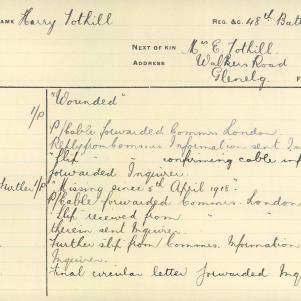 NAME Harry Tothill REG. &C. 48th Batt
NEXT OF KIN Mrs E. Tothill.
ADDRESS Walkers Road
Glenelg. F
I/P "Wounded"
P/Cable forwarded Commrs. London.
Reply from Commrs. Information sent In
"Slip" " " confirming cable inf
forwarded Inquirer.
Further I/P "Missing since 5th April 1918."
P/Cable forwarded Commrs. London
Slip received from "
therein sent Inquirer.
Further slip from Commrs. Information
Inquirer.
Final circular letter forwarded Inq